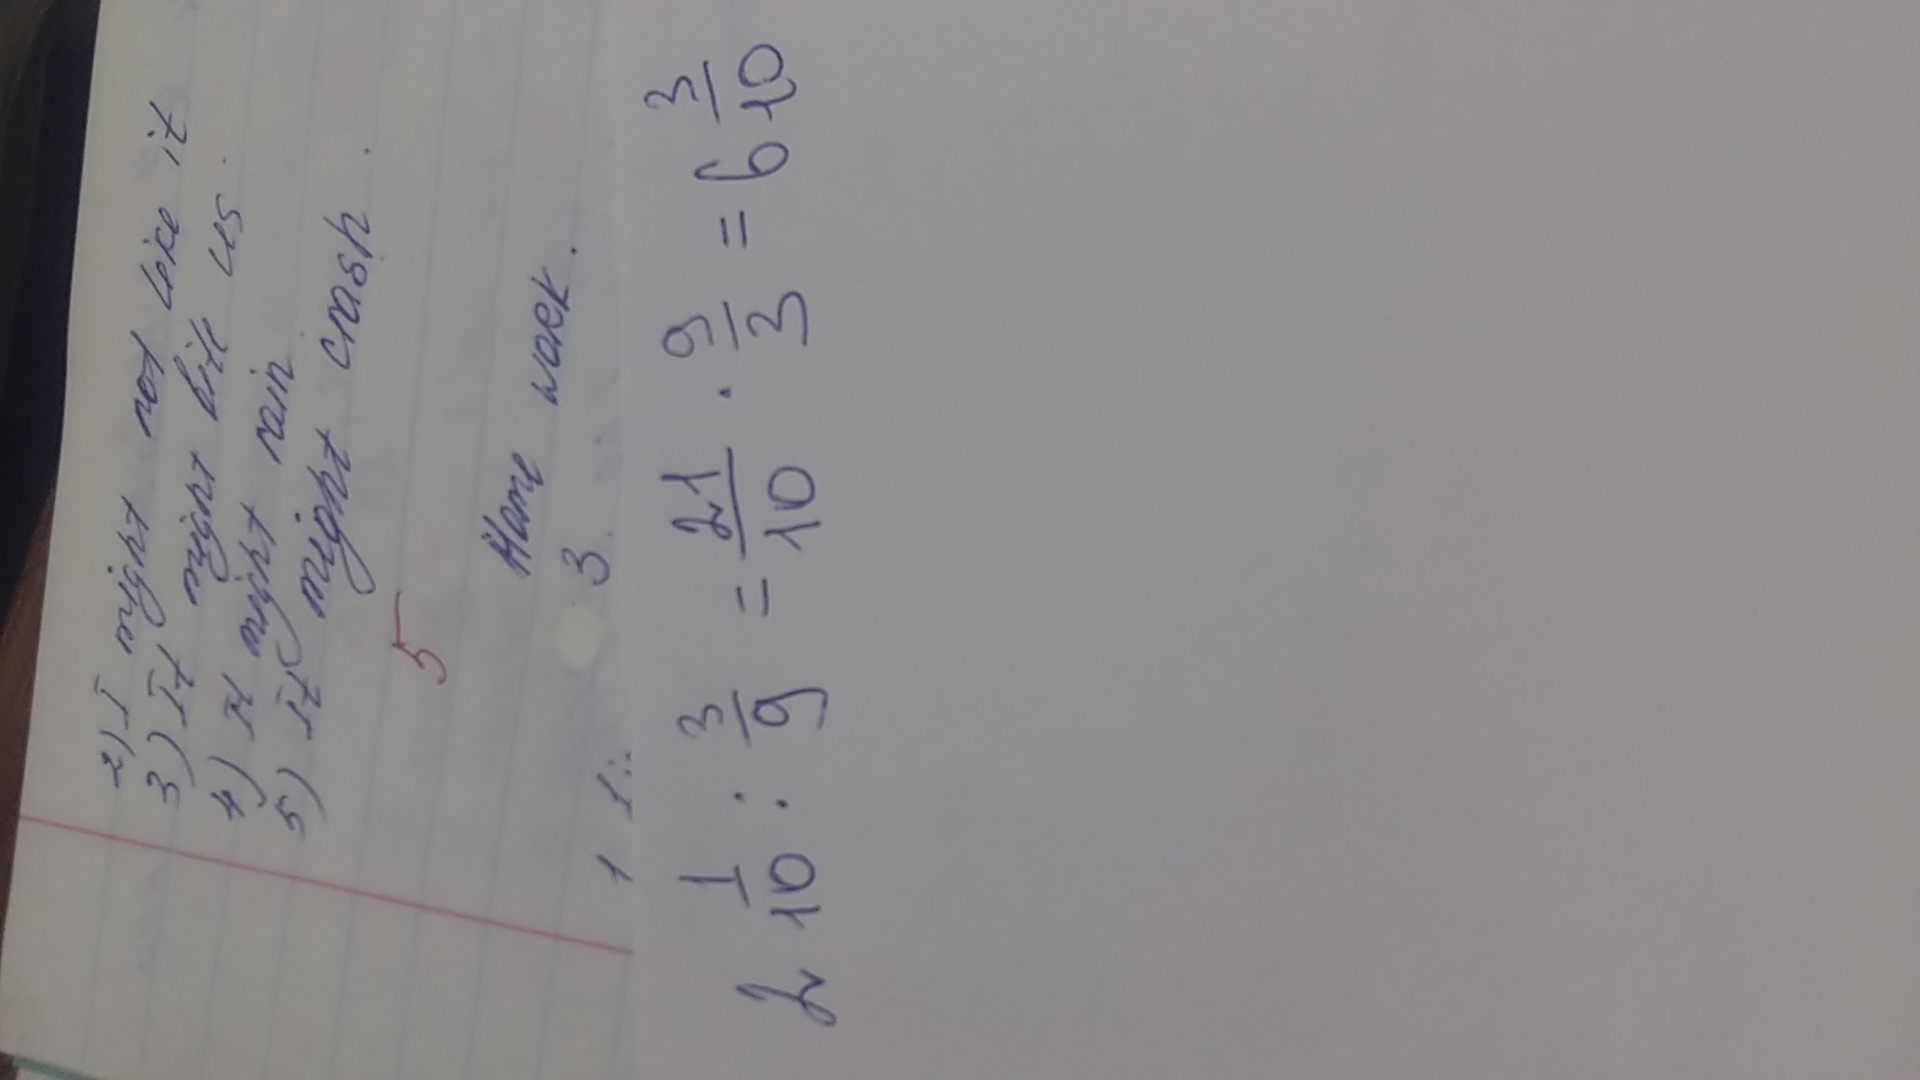 2) I might not like it
3) It might bite us.
4) It might rain
5) It might crash.
5
Home work.
3
2 1/10 : 3/9 = 21/10 · 9/3 = 6 3/10